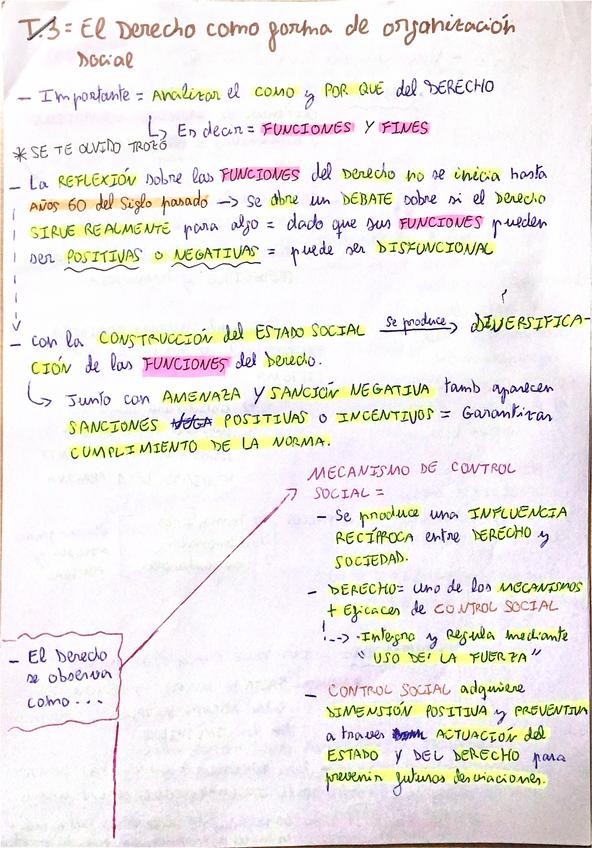 T.3 = El Derecho como forma de organización
social
- Importante = Analizar el COMO y POR QUE del DERECHO
↳ Es decir = FUNCIONES Y FINES
* SE TE OLVIDO TROZO
- La REFLEXIÓN sobre las FUNCIONES del Derecho no se inicia hasta
AÑOS 60 del Siglo pasado → Se abre un DEBATE sobre si el Derecho
SIRVE REALMENTE para algo = dado que sus FUNCIONES pueden
ser POSITIVAS o NEGATIVAS = puede ser DISFUNCIONAL
- con la CONSTRUCCIÓN del ESTADO SOCIAL se produce → DIVERSIFICA-
CIÓN de las FUNCIONES del Derecho.
↳ Junto con AMENAZA Y SANCIÓN NEGATIVA tamb aparecen
SANCIONES POSITIVAS o INCENTIVOS = Garantizar
CUMPLIMIENTO DE LA NORMA.
MECANISMO DE CONTROL
SOCIAL =
- Se produce una INFLUENCIA
RECÍPROCA entre DERECHO y
SOCIEDAD.
- DERECHO = uno de los MECANISMOS
+ Eficaces de CONTROL SOCIAL
--> Integra y Regula mediante
"USO DE LA FUERZA"
- CONTROL SOCIAL adquiere
DIMENSIÓN POSITIVA y PREVENTIVA
a traves ACTUACIÓN del
ESTADO Y DEL DERECHO para
prevenir futuras desviaciones.
- El Derecho
se observa
como...